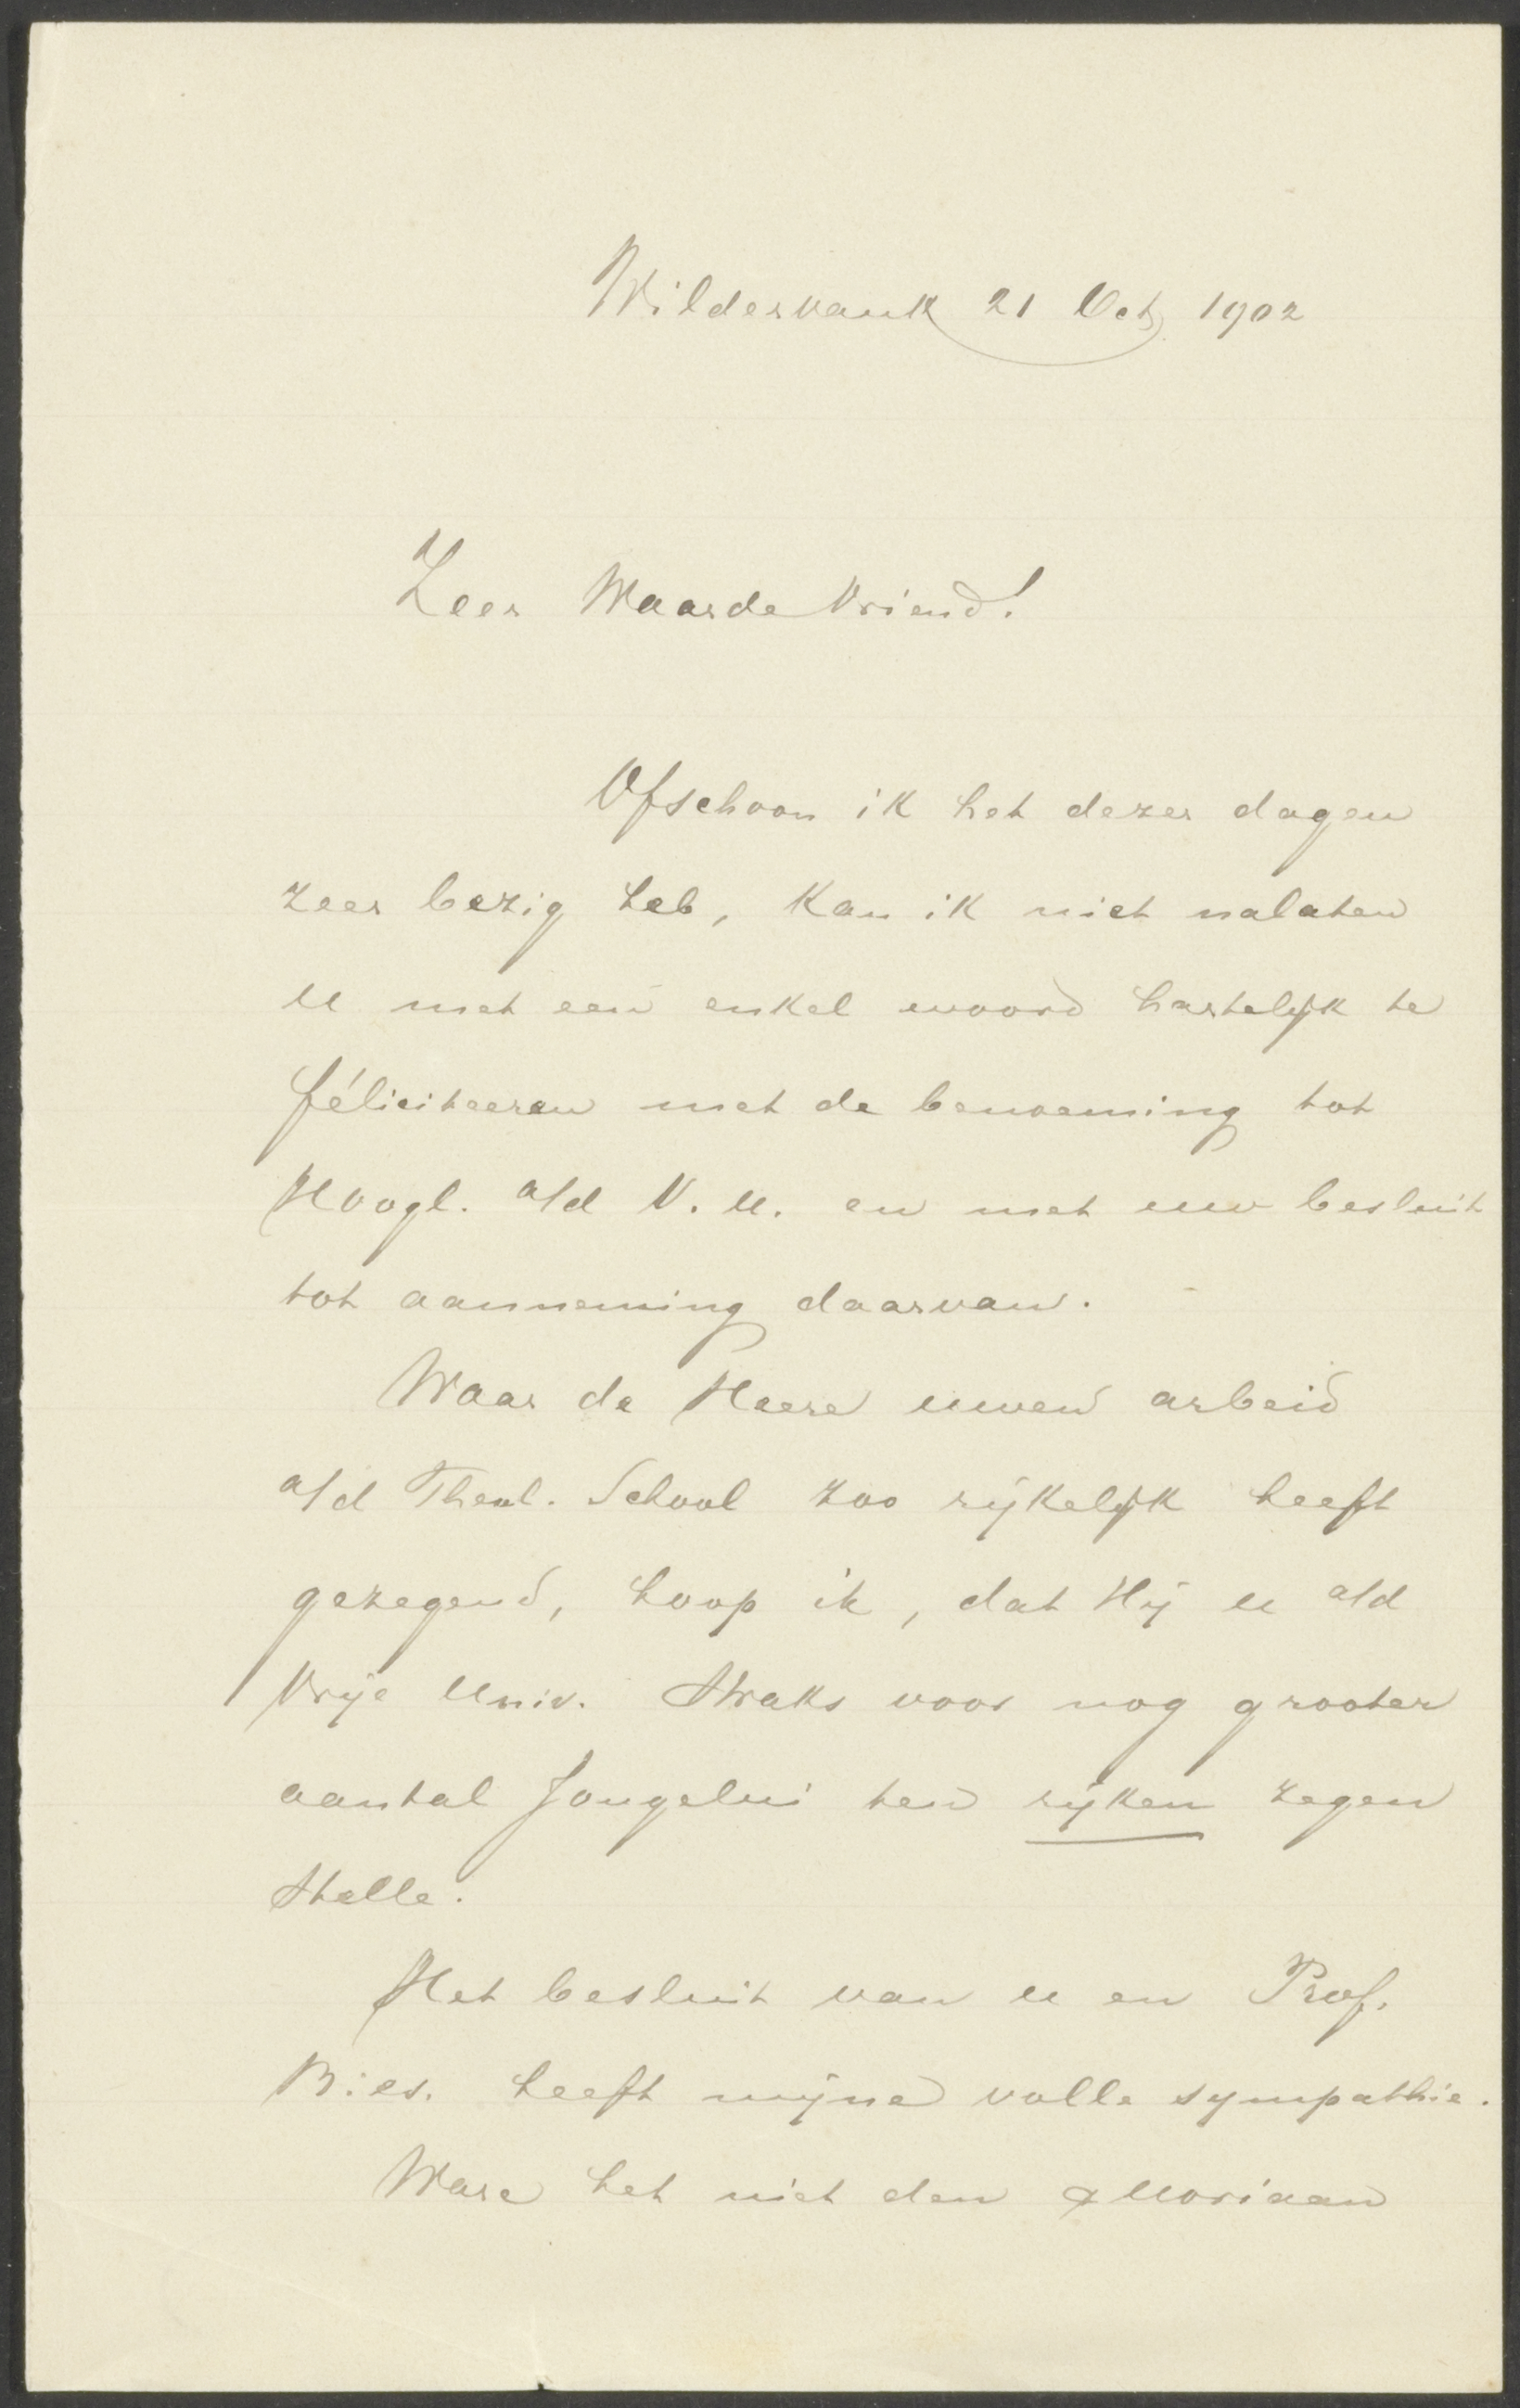 Wildervank 21 Oct 1902
Zeer Waarde Vriend!
Ofschoon ik het dezer dagen
zeer bezig heb, kan ik niet nalaten
U met een enkel woord hartelijk te
féliciteeren met de benoeming tot
Hoogl. a/d V. U. en met uw besluit
tot aanneming daarvan.
Waar de Heere uwen arbeid
a/d Theol. School zoo rijkelijk heeft
gezegend, hoop ik, dat Hij u a/d
Vrije Univ. straks voor nog grooter
aantal Jongelui ten rijken zegen
stelle.
Het besluit van u en Prof.
Bies. heeft mijne volle sympathie.
Ware het niet den Moriaan